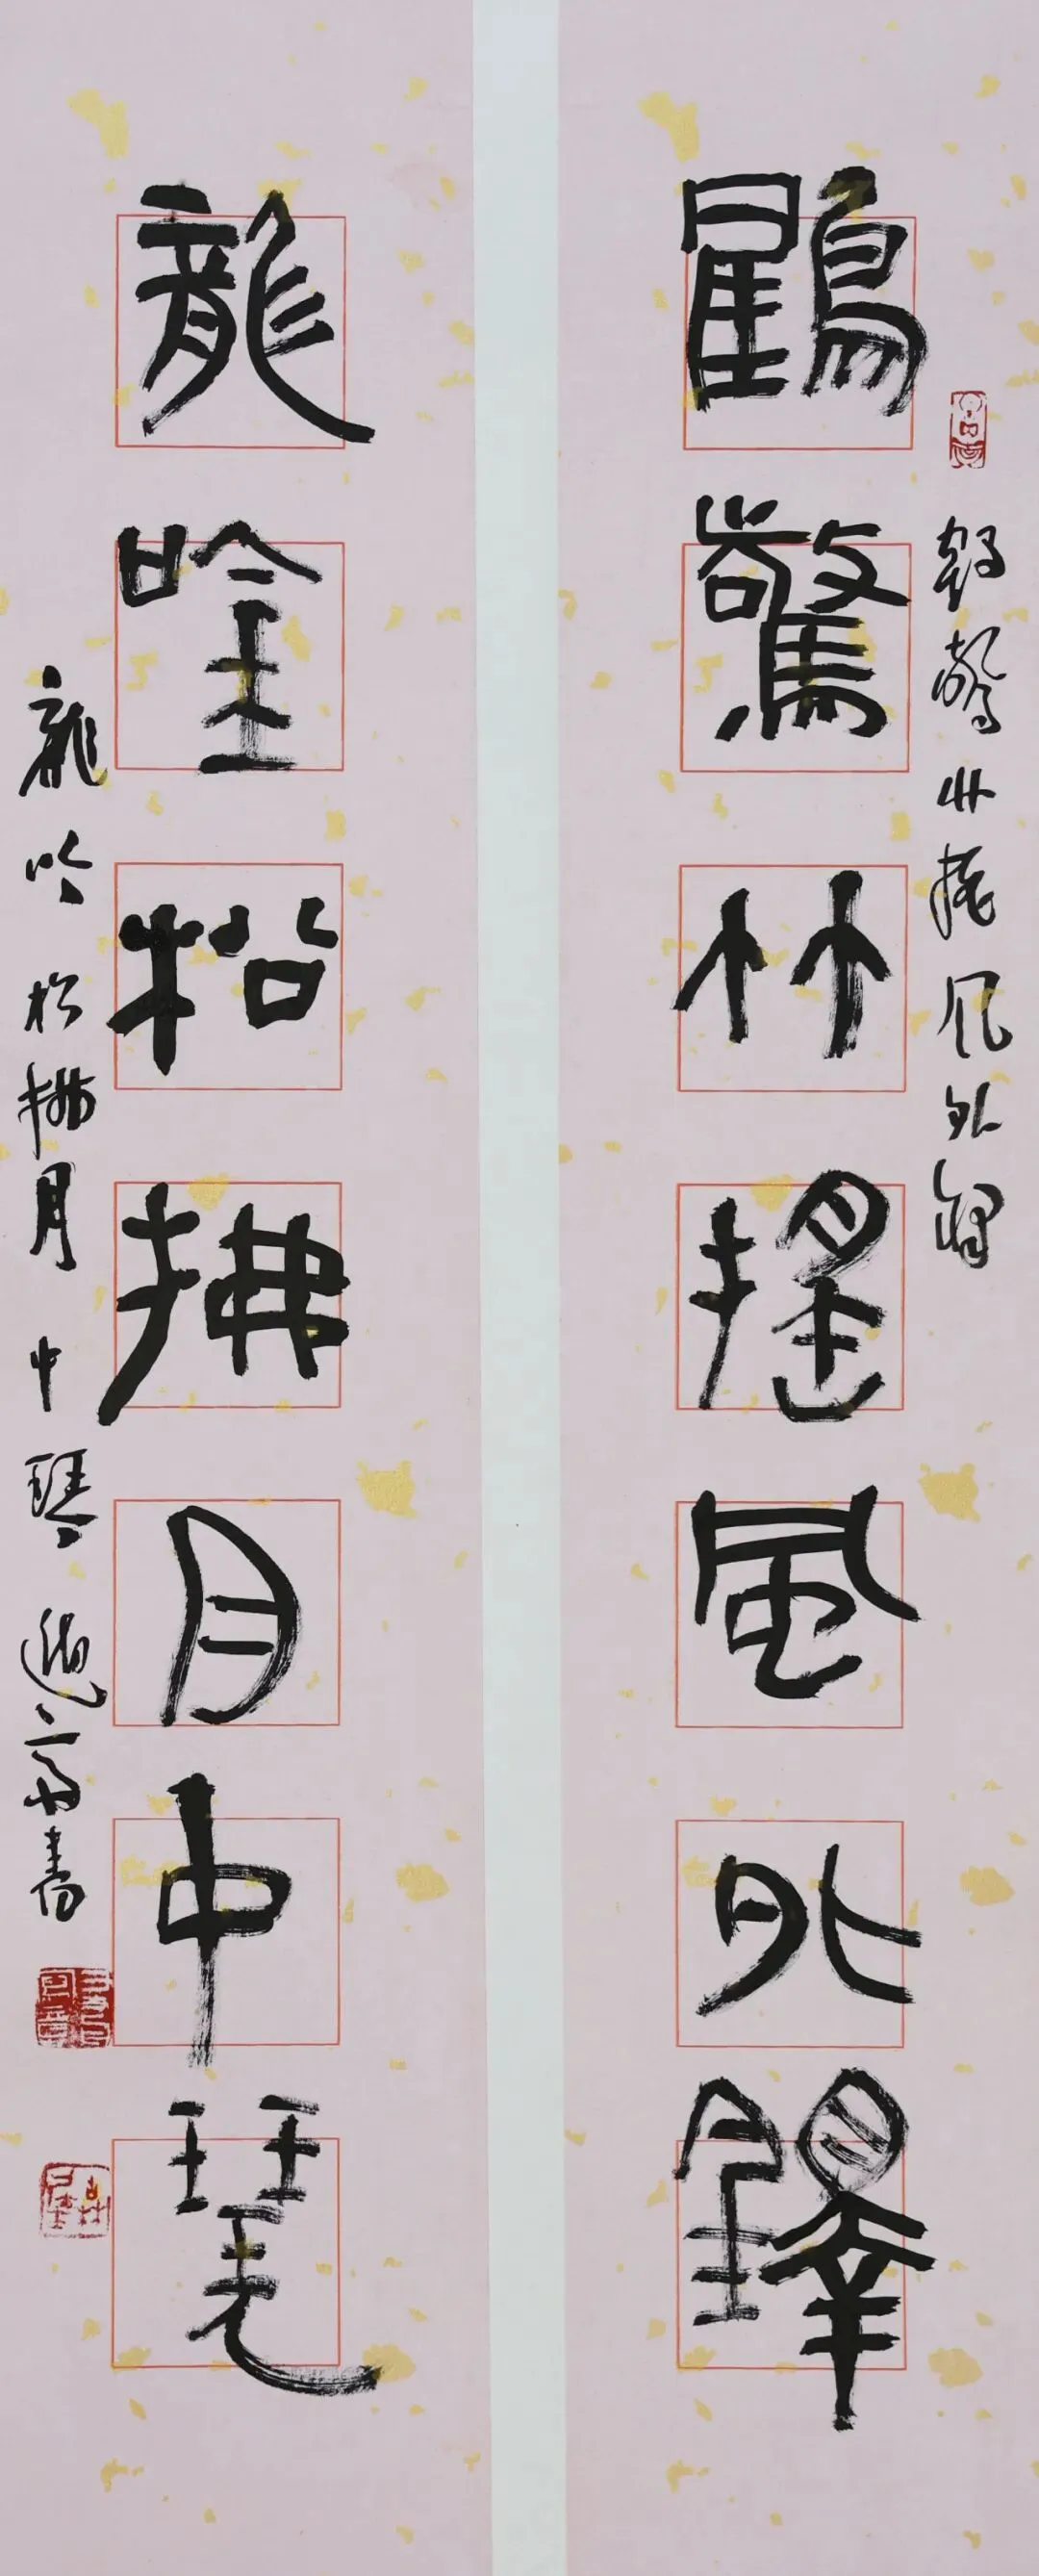 鶴驚竹搖風外鐸
鶴驚竹搖風外鐸
龍唫松拂月中琴
龍吟松拂月中琴 遯齋書